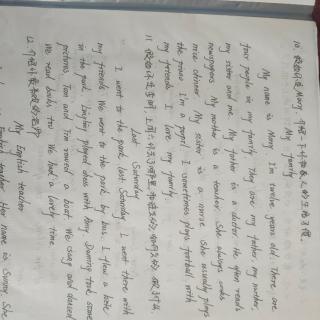 10. 假如你是Mary,介绍一下你和家人的生活习惯。
My family
My name is Mary I'm twelve years old. There are
four people in my family They are my father, my mother
my sister and me. My father is a doctor He often reads
newspapers My mother is a teacher She always cooks
nice dinner My sister is a nurse She usually plays
the piano I'm a pupil I sometimes plays football with
my friends I love my family
11.
Last Saturday
I went to the park last Saturday. I went there with
my friends We went to the park by bus. I flew a kite
in the park Lingling played chess with Amy Daming took some
pictures, Tom and Tim rowed a boat. We sang and danced
We read books too We had a lovely time
12.
My English teacher
English teacher Her name is Sunny. She